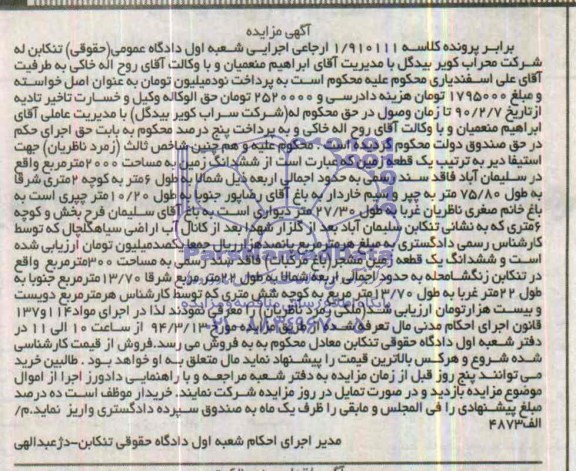 آگهی مزایده
برابر پرونده کلاسه 1/910111 ارجاعی اجرایی شعبه اول دادگاه عمومی(حقوقی) تنکابن له
شرکت محراب کویر بیدگل با مدیریت آقای ابراهیم منعمیان و با وکالت آقای روح اله خاکی به طرفیت
آقای علی اسفندیاری محکوم علیه محکوم است به پرداخت نودمیلیون تومان به عنوان اصل خواسته
و مبلغ 1795000 تومان هزینه دادرسی و 2520000 تومان حق الوکاله وکیل و خسارت تاخیر تادیه
ازتاریخ 90/2/7 تا زمان وصول در حق محکوم له(شرکت سراب کویر بیدگل) با مدیریت عاملی آقای
ابراهیم منعمیان و با وکالت آقای روح اله خاکی و به پرداخت پنج درصد محکوم به بابت حق اجرای حکم
در حق صندوق دولت محکوم گردیده است . محکوم علیه و هم چنین شاخص ثالث (زمرد ناظریان) جهت
استیفا دیر به ترتیب یک قطعه زمین که عبارت است از ششدانگ زمین به مساحت 2000مترمربع واقع
در سلیمان آباد فاقد سند رسمی به حدود اجمالی اربعه ذیل شمالا به طول 6متر به کوچه 2متری شرقا
به طول 75/80 متر به چپر و سیم خاردار به باغ آقای رضاپور جنوبا به طول 10/20 متر چپری است به
باغ خانم صغری ناظریان غربا به طول 27/30 متر دیواری است به باغ آقای سلیمان فرح بخش و کوچه
6متری که به نشانی تنکابن سلیمان آباد بعد از گلزار شهدا بعد از کانال آب اراضی سیاهگلچال که توسط
کارشناس رسمی دادگستری به مبلغ هرمترمربع پانصدهزارریال جمعا یکصدمیلیون تومان ارزیابی شده
است و ششدانگ یک قطعه زمین مشجر(باغ مرکبات) فاقد سند رسمی به مساحت 300مترمربع واقع
در تنکابن زنگشامحله به حدود اجمالی اربعه شمالا به طول 22مترمربع شرقا 13/70مترمربع جنوبا به
طول 22متر غربا به طول 13/70متر مربع به کوچه شش متری که توسط کارشناس هرمترمربع دویست
و بیست هزارتومان ارزیابی شد(ملکی زمرد ناظریان) را معرفی نمودند لذا در اجرای مواد114و137
قانون اجرای احکام مدنی مال تعرفه شده از طریق مزایده مورخ 94/3/13 از ساعت 10 الی 11 در
دفتر شعبه اول دادگاه حقوقی تنکابن معادل محکوم به به فروش می رسد.فروش از قیمت کارشناسی
شده شروع و هرکس بالاترین قیمت را پیشنهاد نماید مال متعلق به او خواهد بود . طالبین خرید
می توانند پنج روز قبل از زمان مزایده به دفتر شعبه مراجعه و با راهنمایی دادورز اجرا از اموال
موضوع مزایده بازدید و در صورت تمایل در روز مزایده شرکت نمایند. خریدار موظف است ده درصد
مبلغ پیشنهادی را فی المجلس و مابقی را ظرف یک ماه به صندوق سپرده دادگستری واریز نماید.م/
الف4873
مدیر اجرای احکام شعبه اول دادگاه حقوقی تنکابن-دژعبدالهی